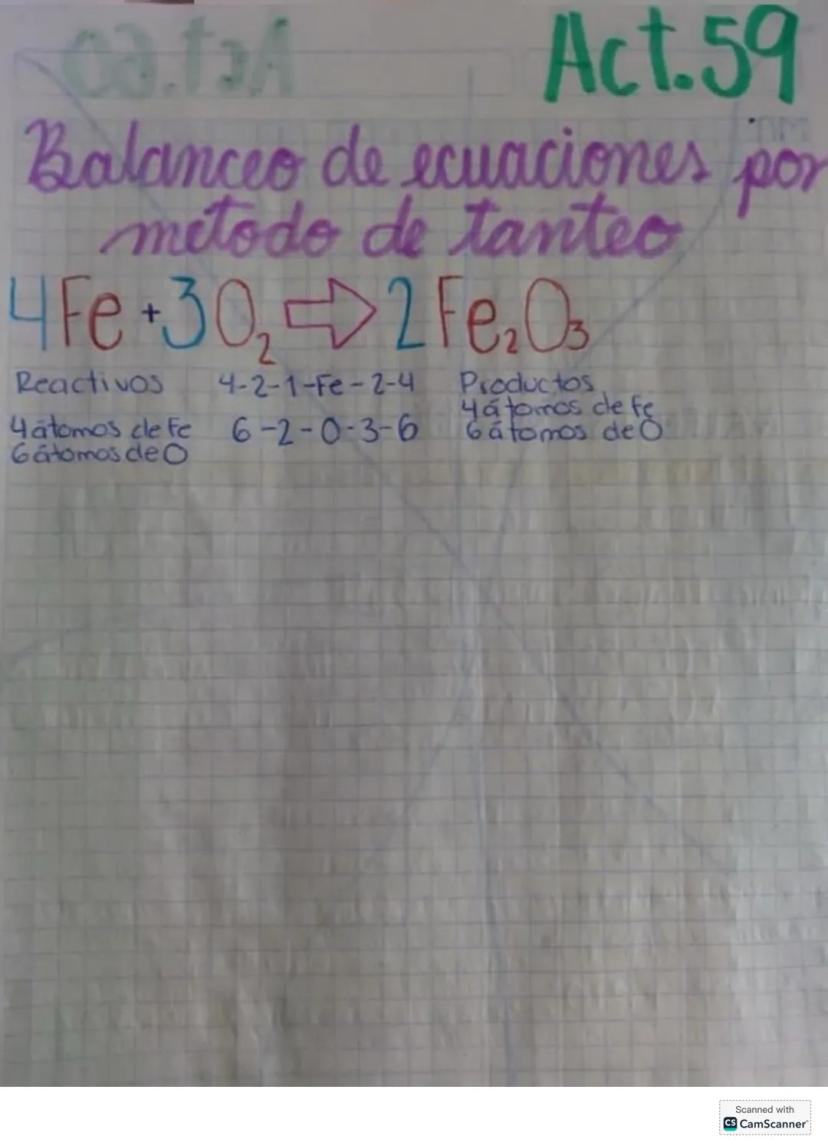 Act.59
Balanceo de ecuaciones por
metodo de tanteo
4Fe + 3O₂ ⇨ 2Fe₂O₃
Reactivos 4-2-1-Fe-2-4 Productos
4 átomos de Fe
4 átomos de Fe 6-2-0-3-6 6 átomos de O
6 átomos de O
Scanned with
CS CamScanner